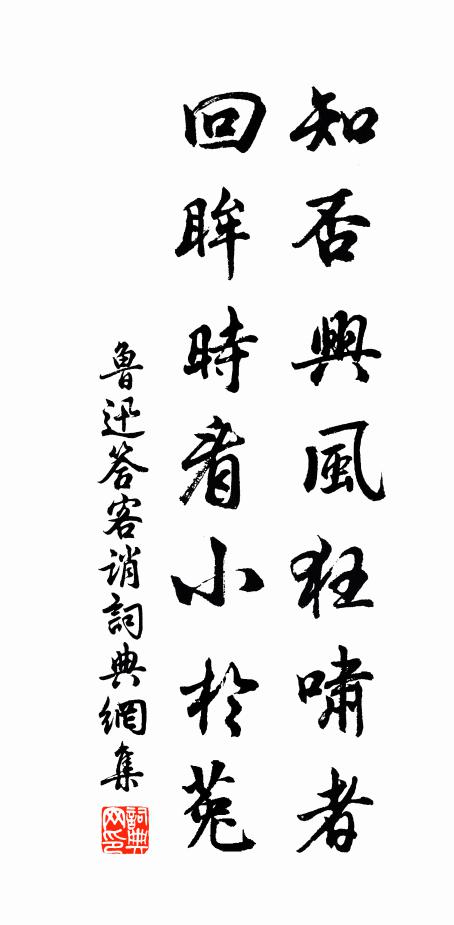 知否興風狂嘯者
回眸時看小於菟
魯迅答客誚詞典網集
詞典网印